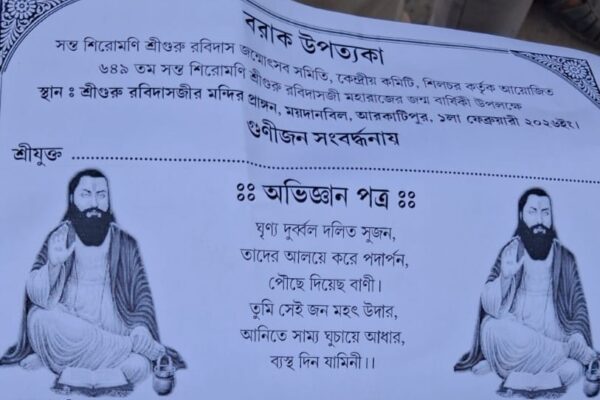 বরাক উপত্যকা
সন্ত শিরোমণি শ্রীগুরু রবিদাস জন্মোৎসব সমিতি, কেন্দ্রীয় কমিটি, শিলচর কর্তৃক আয়োজিত
৬৪৯ তম সন্ত শিরোমণি শ্রীগুরু রবিদাসজী মহারাজের জন্ম বার্ষিকী উপলক্ষে
স্থান ঃ শ্রীগুরু রবিদাসজীর মন্দির প্রাঙ্গন, ময়দানবিল, আরকাটিপুর, ১লা ফেব্রুয়ারী ২০২৬ইং।
গুণীজন সংবর্দ্ধনায়
শ্রীযুক্ত ........................................
ঃঃ অভিজ্ঞান পত্র ঃঃ
ঘৃণ্য দুর্ব্বল দলিত সুজন,
তাদের আলয়ে করে পদার্পন,
পৌছে দিয়েছ বাণী।
তুমি সেই জন মহৎ উদার,
আনিতে সাম্য ঘুচায়ে আধার,
ব্যস্থ দিন যামিনী।।